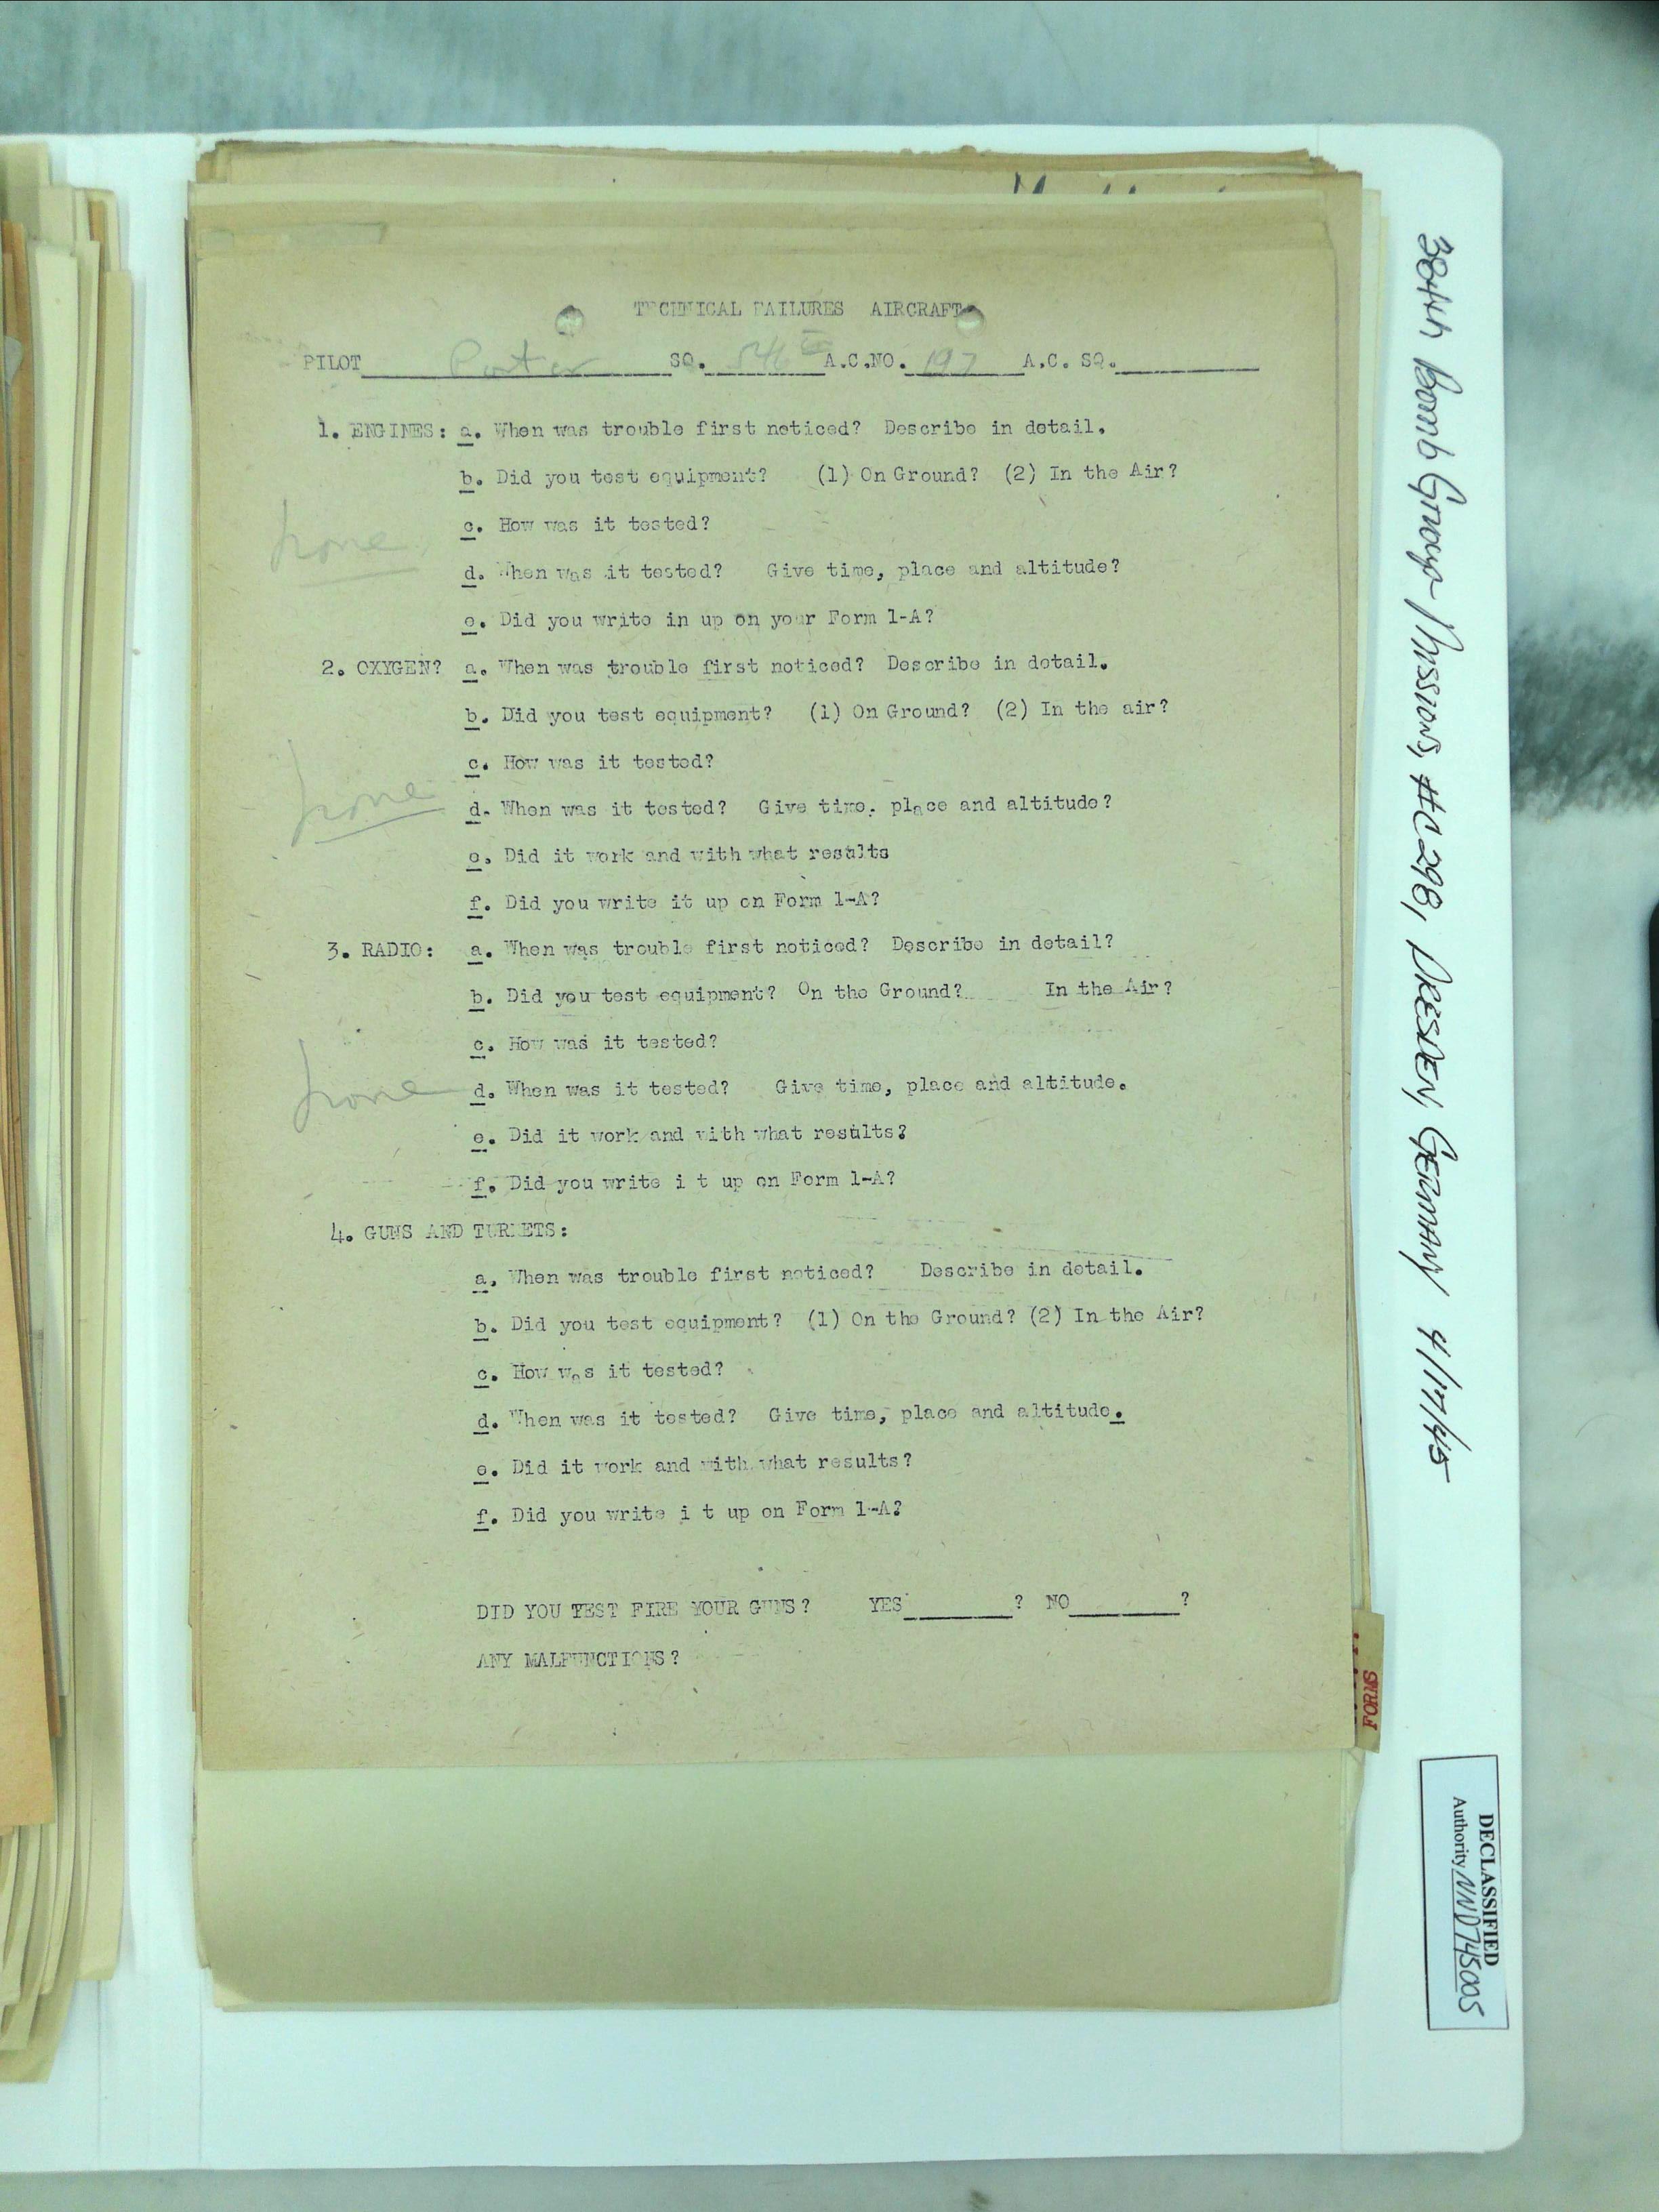 TECHNICAL FAILURES AIRCRAFT
PILOT Porter SQ. 546th A.C.NO. 197 A.C. SQ.
1. ENGINES: a. When was trouble first noticed? Describe in detail.
b. Did you test equipment? (1) On Ground? (2) In the Air?
none
c. How was it tested?
d. When was it tested? Give time, place and altitude?
e. Did you write in up on your Form 1-A?
2. OXYGEN? a. When was trouble first noticed? Describe in detail.
b. Did you test equipment? (1) On Ground? (2) In the air?
c. How was it tested?
none
d. When was it tested? Give time, place and altitude?
e. Did it work and with what results
f. Did you write it up on Form 1-A?
3. RADIO: a. When was trouble first noticed? Describe in detail?
b. Did you test equipment? On the Ground? In the Air?
c. How was it tested?
none
d. When was it tested? Give time, place and altitude.
e. Did it work and with what results?
f. Did you write i t up on Form 1-A?
4. GUNS AND TURRETS:
a. When was trouble first noticed? Describe in detail.
b. Did you test equipment? (1) On the Ground? (2) In the Air?
c. How was it tested?
d. When was it tested? Give time, place and altitude.
e. Did it work and with what results?
f. Did you write i t up on Form 1-A?
DID YOU TEST FIRE YOUR GUNS? YES ? NO ?
ANY MALFUNCTIONS?
FORMS
384th Bomb Group - Missions #C298, DRESDEN, GERMANY 4/17/45
DECLASSIFIED
Authority NND745005